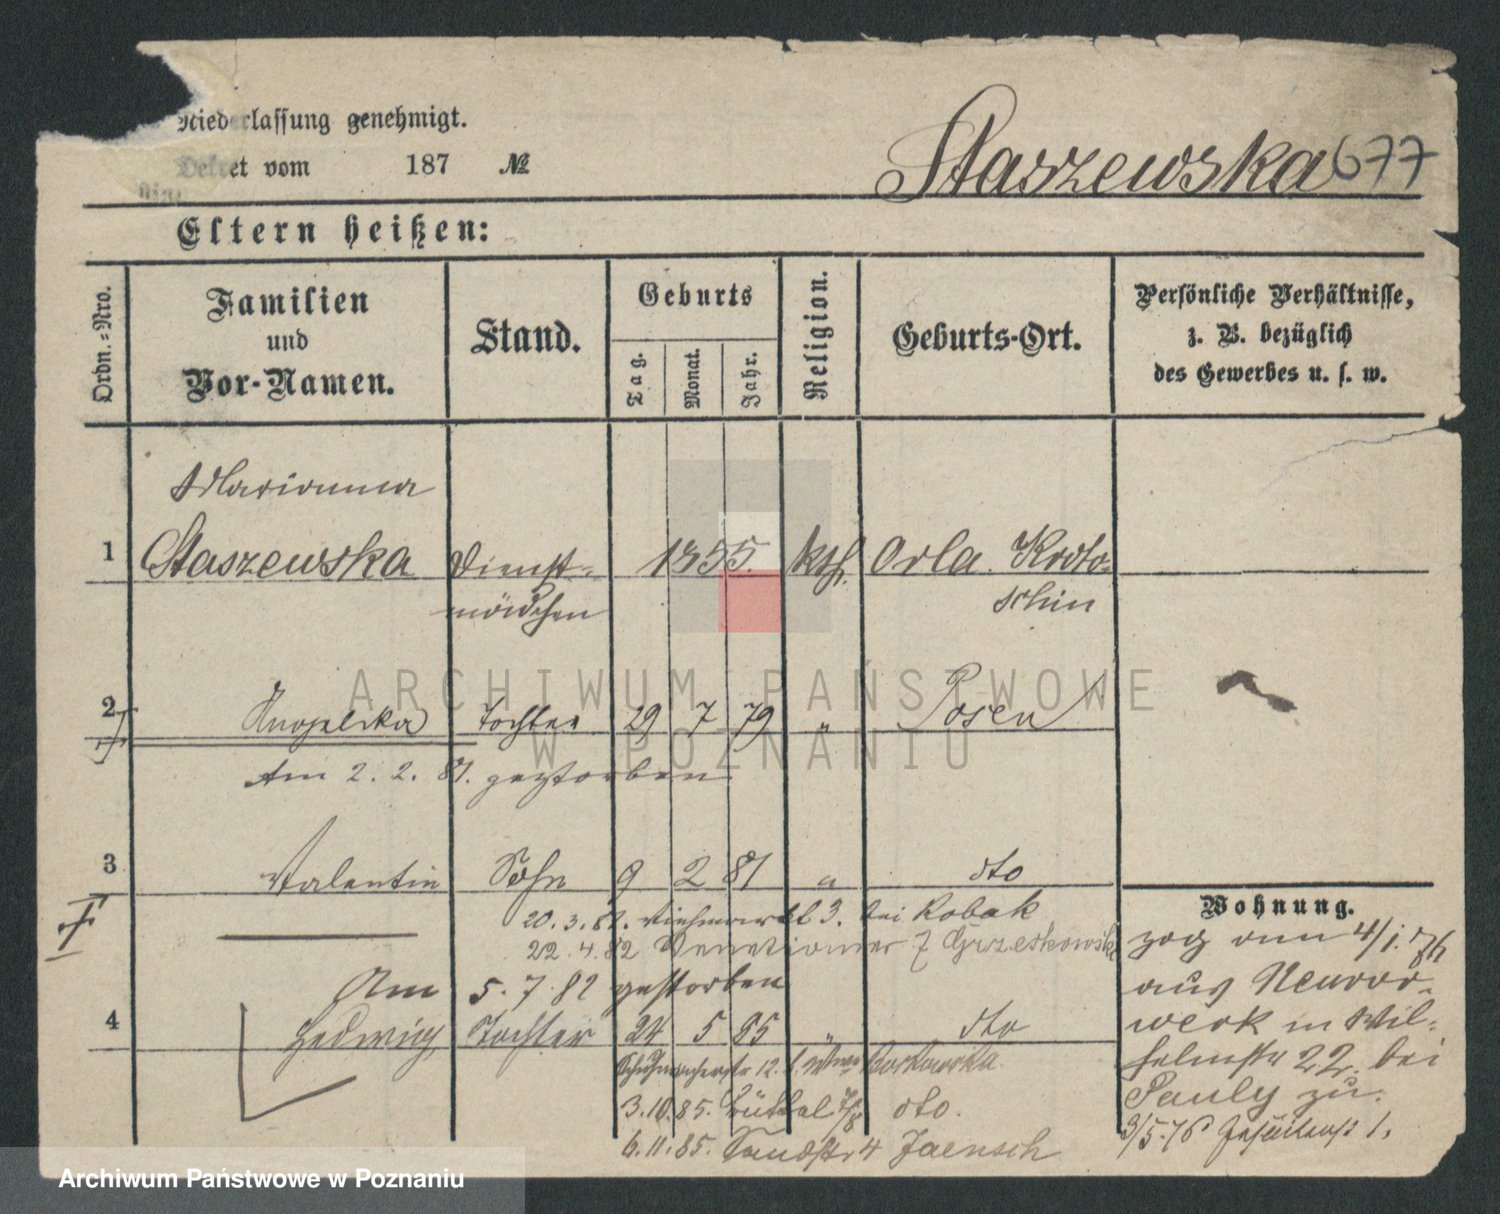 Niederlassung genehmigt.
Dekret vom 187 №
Staszewska 677
Eltern heißen:
Ordn.-Nro.
Familien
und
Vor-Namen.
Stand.
Geburts
Tag.
Monat.
Jahr.
Religion.
Geburts-Ort.
Persönliche Verhältnisse,
z. B. bezüglich
des Gewerbes u. s. w.
Marianna
1 Staszewska Dienst- 1855. kth. Orla Kroto-
mädchen schin
2 Tochter 29 7 79 " Posen
Am 2. 2. 81. gestorben
3 Valentin Sohn 9 2 81 " dto
20. 3. 82. Viehmarkt 3. bei Kobak
22. 4. 82 Venetianer 7 Grzeskowski
Am 5. 7. 82 gestorben
4 Hedwig Tochter 24 5 85 " dto
Schuhmacherstr 12. b. Borkowska.
3. 10. 85. Büttel 7/8 dto.
6. 11. 85. Sandstr 4 Jaensch
Wohnung.
zog am 4/1. 76
aus Neuvor-
werk in Wil-
helmstr 22. bei
Pauly zu.
3/5 76 Jesuitenst 1.
ARCHIWUM PAŃSTWOWE
W POZNANIU
Archiwum Państwowe w Poznaniu